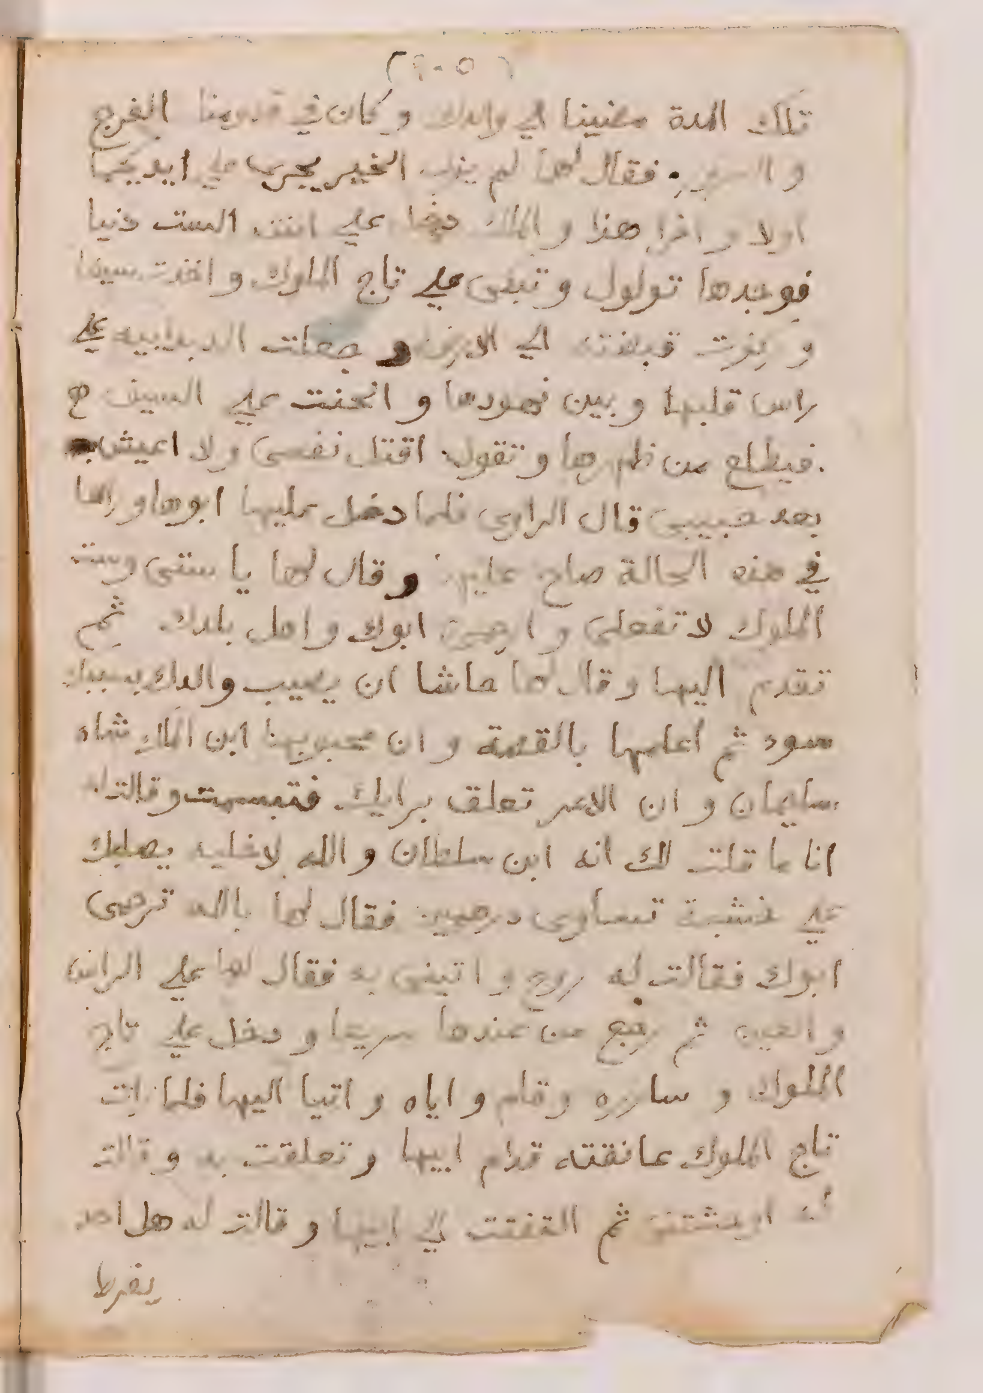 (٢٠٥)
تلك المدة مضينا الي والدك وكان في قدومنا الفرج
و السرور فقال لهما لم يزل الخير يجري علي ايديكما
اولا و اخرا هذا و الملك دخل علي ابنته الست دنيا
فوجدها تولول و تبكي علي تاج الملوك و اخذت سيفا
و ركزت قبضته الي الارض و جعلت الدبابيه علي
راس قلبها و بين نهودها و انحنت علي السيف
فيطلع من ظهرها و تقول اقتل نفسي ولا اعيش
بعد حبيبي قال الراوي فلما دخل عليها ابوها وراها
في هذه الحالة صاح عليها وقال لها يا ستي وست
الملوك لا تفعلي و ارحمي ابوك و اهل بلدك ثم
تقدم اليها و قال لها حاشا ان يصيب والدك بسببك
سوء ثم أعلمها بالقصة و ان محبوبها ابن الملك شاه
سليمان و ان الامر تعلق برايك فتبسمت و قالت له
انا ما قلت لك انه ابن سلطان و الله لاخليه يصلبك
علي خشبة تساوي درهمين فقال لها بالله ترحمي
ابوك فقالت له روح و اتيني به فقال لها علي الراس
و العين ثم رجع من عندها سريعا و دخل علي تاج
الملوك و سارره و قام و اياه و اتيا اليها فلما رات
تاج الملوك عانقته قدام ابيها و تعلقت به و قالت
له اوحشتني ثم التفتت الي ابيها و قالت له هل احد
يفرط